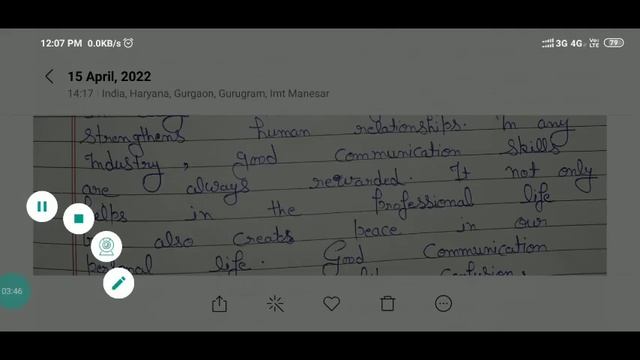 12:07 PM 0.0KB/s 3G 4G Vo LTE 79
15 April, 2022
14:17 India, Haryana, Gurgaon, Gurugram, Imt Manesar
strengthens human relationships. In any
Industry, good communication skills
are always rewarded. It not only
helps in the professional life
also creats peace in our
personal life. Good Communication
confusion,
03:46